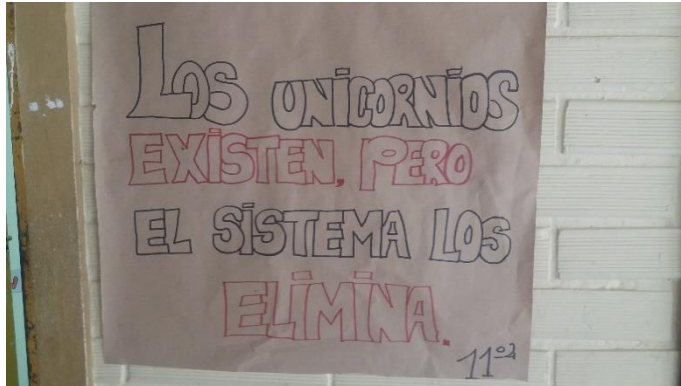 LOS UNICORNIOS
EXISTEN, PERO
EL SISTEMA LOS
ELIMINA.
11º2